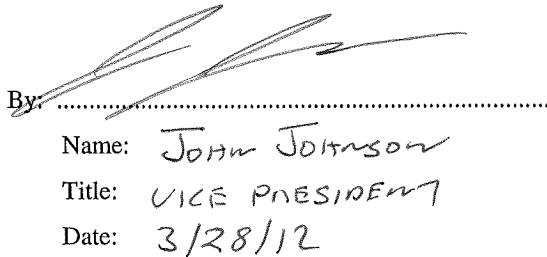 By:
Name: John Johnson
Title: Vice President
Date: 3/28/12